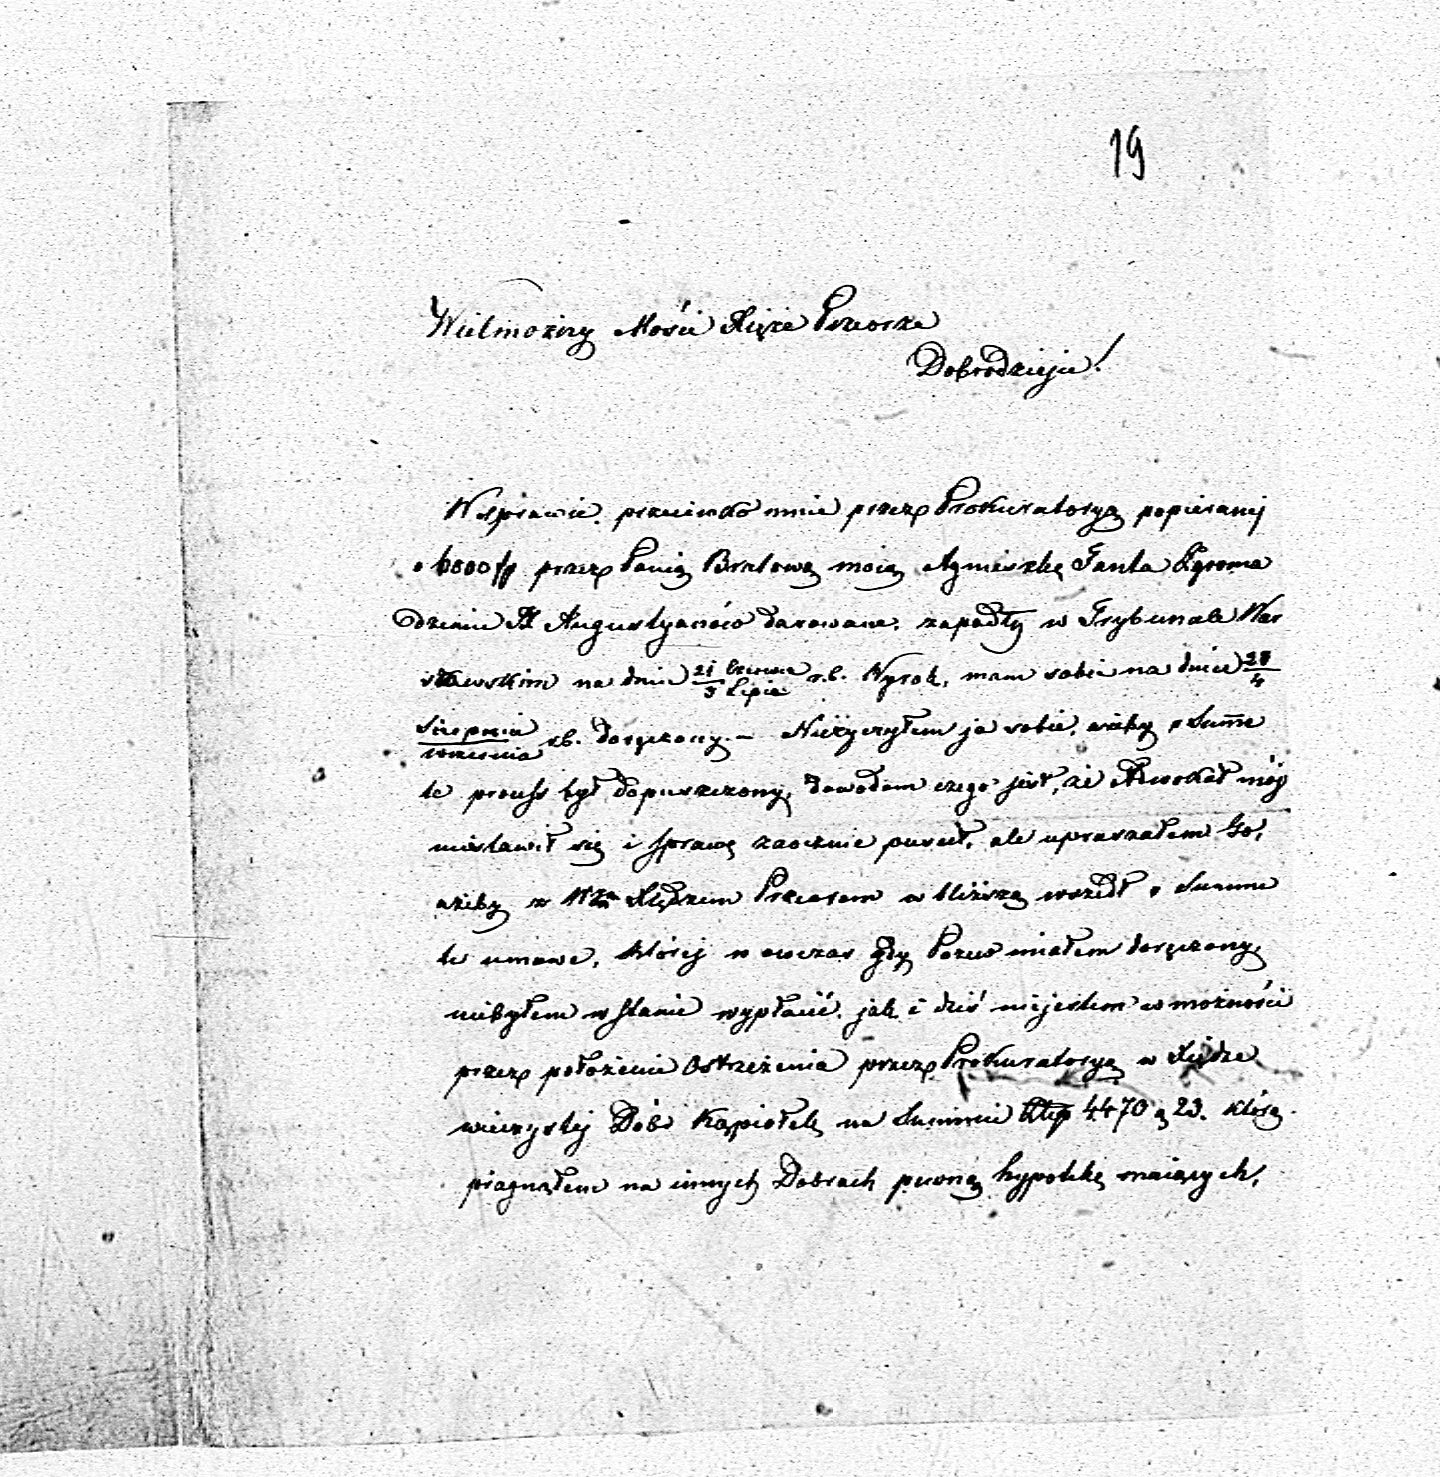 19
Wielmożny Mości Xięże Przeorze
Dobrodzieju!
W sprawie przeciwko mnie przez Prokuratoryą popieranej
o 6000 fp przez Panią Bratową moią Agnieszkę Fanta Zgroma
dzeniu XX Augustyanów darowane, zapadły w Trybunale War
szawskim na dniu 21 Czerwca/3 Lipca r.b. Wyrok, mam sobie na dniu 23/4
Sierpnia/Września r.b. doręczony. — Nieżyczyłem ja sobie, ażeby o Summę
te process był dopuszczony, dowodem czego jest, że Adwokat mój
niestawił się i sprawę zaocznie puścił, ale upraszałem Go,
ażeby z Xiędzem Przeorem w bliższą wszedł o Summe
te umowe, której w owczas gdy Pozew miałem doręczony,
niebyłem w stanie wypłacić, jak i dziś niejestem w możności
przez położenie Ostrzeżenia przez Prokuratoryą w Xiędze
wieczystej Dóbr na Summie 4470 g 23. którą
pragnąłem na innych Dobrach pewną hypotekę maiących,